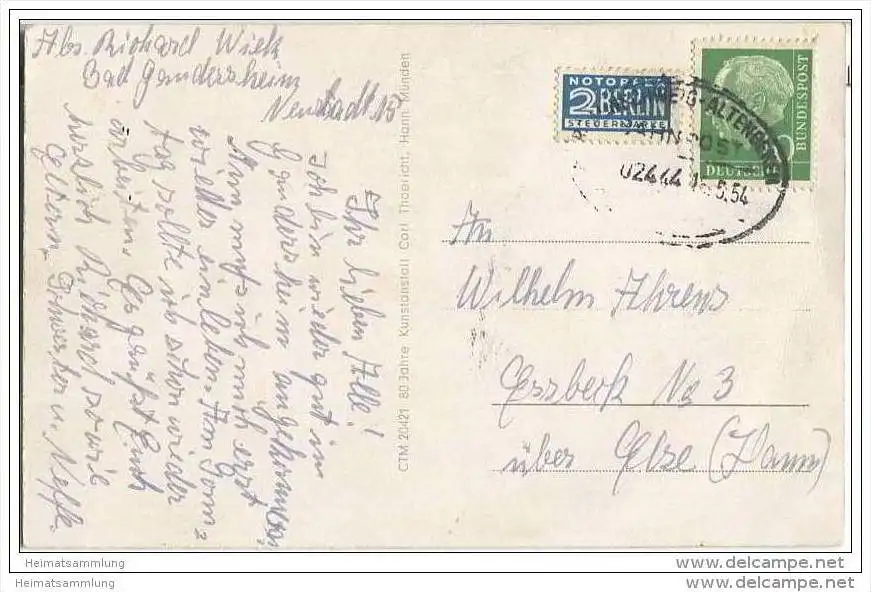 Abs. Richard Wiek
Bad Gandersheim
Neustadt 15
Ihr lieben Alle!
Ich bin wieder gut in
Gandersheim angekommen.
Nun muß ich mich erst
wieder einleben. Am Donners-
tag sollte ich schon wieder
arbeiten. Es grüßt Euch
herzlich Richard sowie
Eltern, Schwester u. Neffe.
CTM 20421 80 Jahre Kunstanstalt Carl Thoericht, Hann. Münden
NOTOPFER
2 BERLIN
STEUERMARKE
DEUTSCHE
BUNDESPOST
BAHNPOST
02444
.5.54
An
Wilhelm Ahrens
Essbeck No 3
über Elze (Hann)
Heimatsammlung
www.delcampe.net
Heimatsammlung
www.delcampe.net